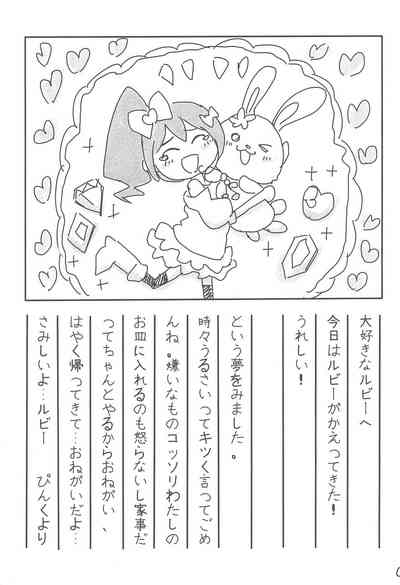 大好きなルビーへ
今日はルビーがかえってきた!
うれしい!
という夢をみました。
時々うるさいってキツく言ってごめ
んね。嫌いなものコッソリわたしの
お皿に入れるのも怒らないし家事だ
ってちゃんとやるからおねがい、
はやく帰ってきて…おねがいだよ…
さみしいよ…ルビー ぴんくより